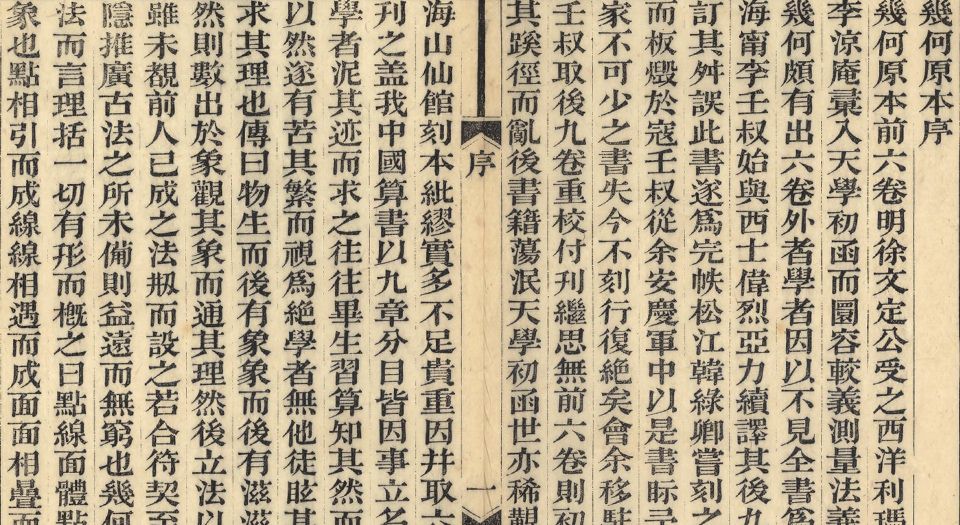 幾何原本序
幾何原本前六卷明徐文定公受之西洋利瑪
李涼庵彙入天學初函而圜容較義測量法義
幾何頗有出六卷外者學者因以不見全書爲
海甯李壬叔始與西士偉烈亞力續譯其後九
訂其舛誤此書遂爲完帙松江韓綠卿嘗刻之
而板燬於寇壬叔從余安慶軍中以是書眎
家不可少之書失今不刻行復絕矣會余移駐
壬叔取後九卷重校付刊繼思無前六卷則初
其蹊徑而亂後書籍蕩泯天學初函世亦稀覯
序
一
海山仙館刻本紕繆實多不足貴重因幷取六
刊之蓋我中國算書以九章分目皆因事立名
學者泥其迹而求之往往畢生習算知其然而
以然遂有苦其繁而視爲絕學者無他徒眩其
求其理也傳曰物生而後有象象而後有滋滋
然則數出於象觀其象而通其理然後立法以
雖未覩前人已成之法刱而設之若合符契至
隱推廣古法之所未備則益遠而無窮也幾何
法而言理括一切有形而槪之曰點線面體點
象也點相引而成線線相遇而成面面相疊而